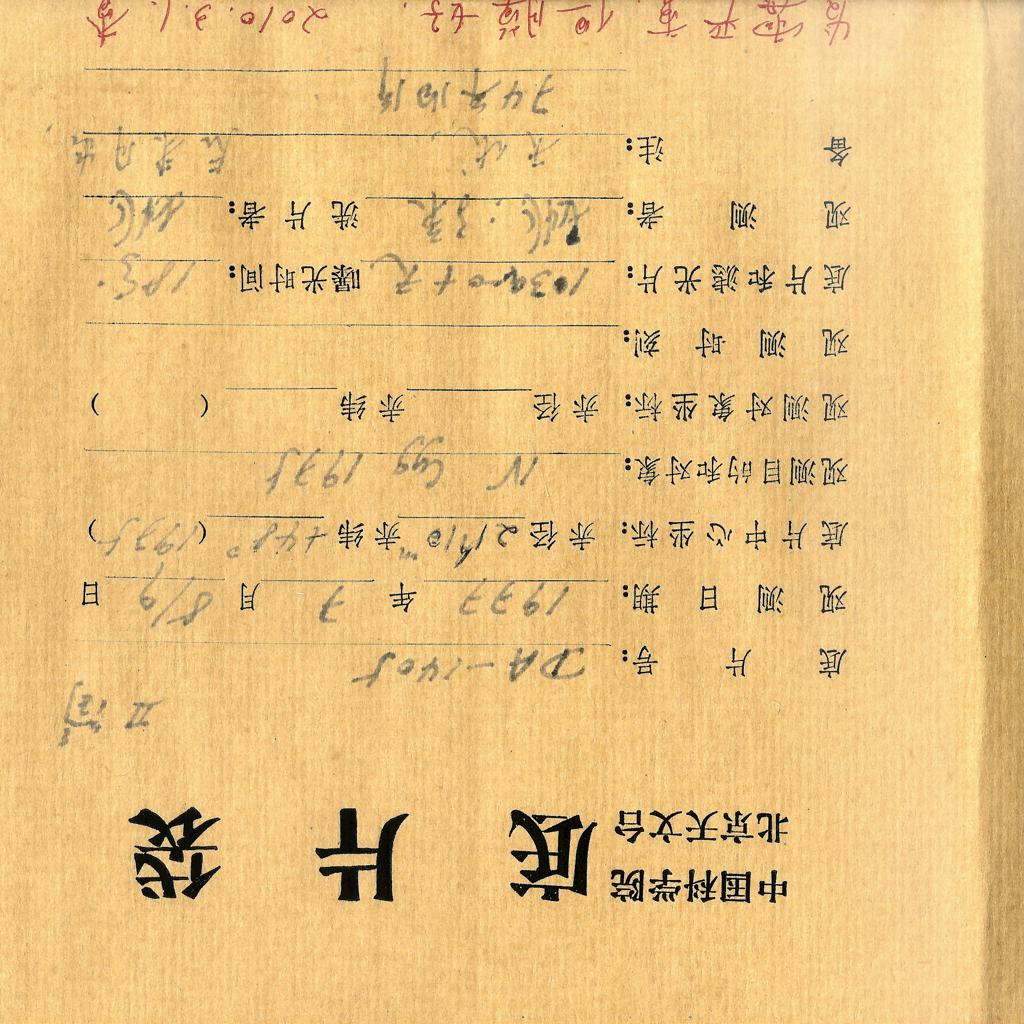 中国科学院
北京天文台 底片袋
底片号: DA-1405
观测日期: 1977 年 7 月 8/9 日
底片中心坐标: 赤径 21h10m 赤纬 +48° (1975)
观测目的和对象: N Cyg 1975
观测对象坐标: 赤径 赤纬 ( )
观测时刻:
底片和滤光片: 103aO+无 曝光时间:
观测者: 洗片者:
备注:
74年10月
2010.3.1.